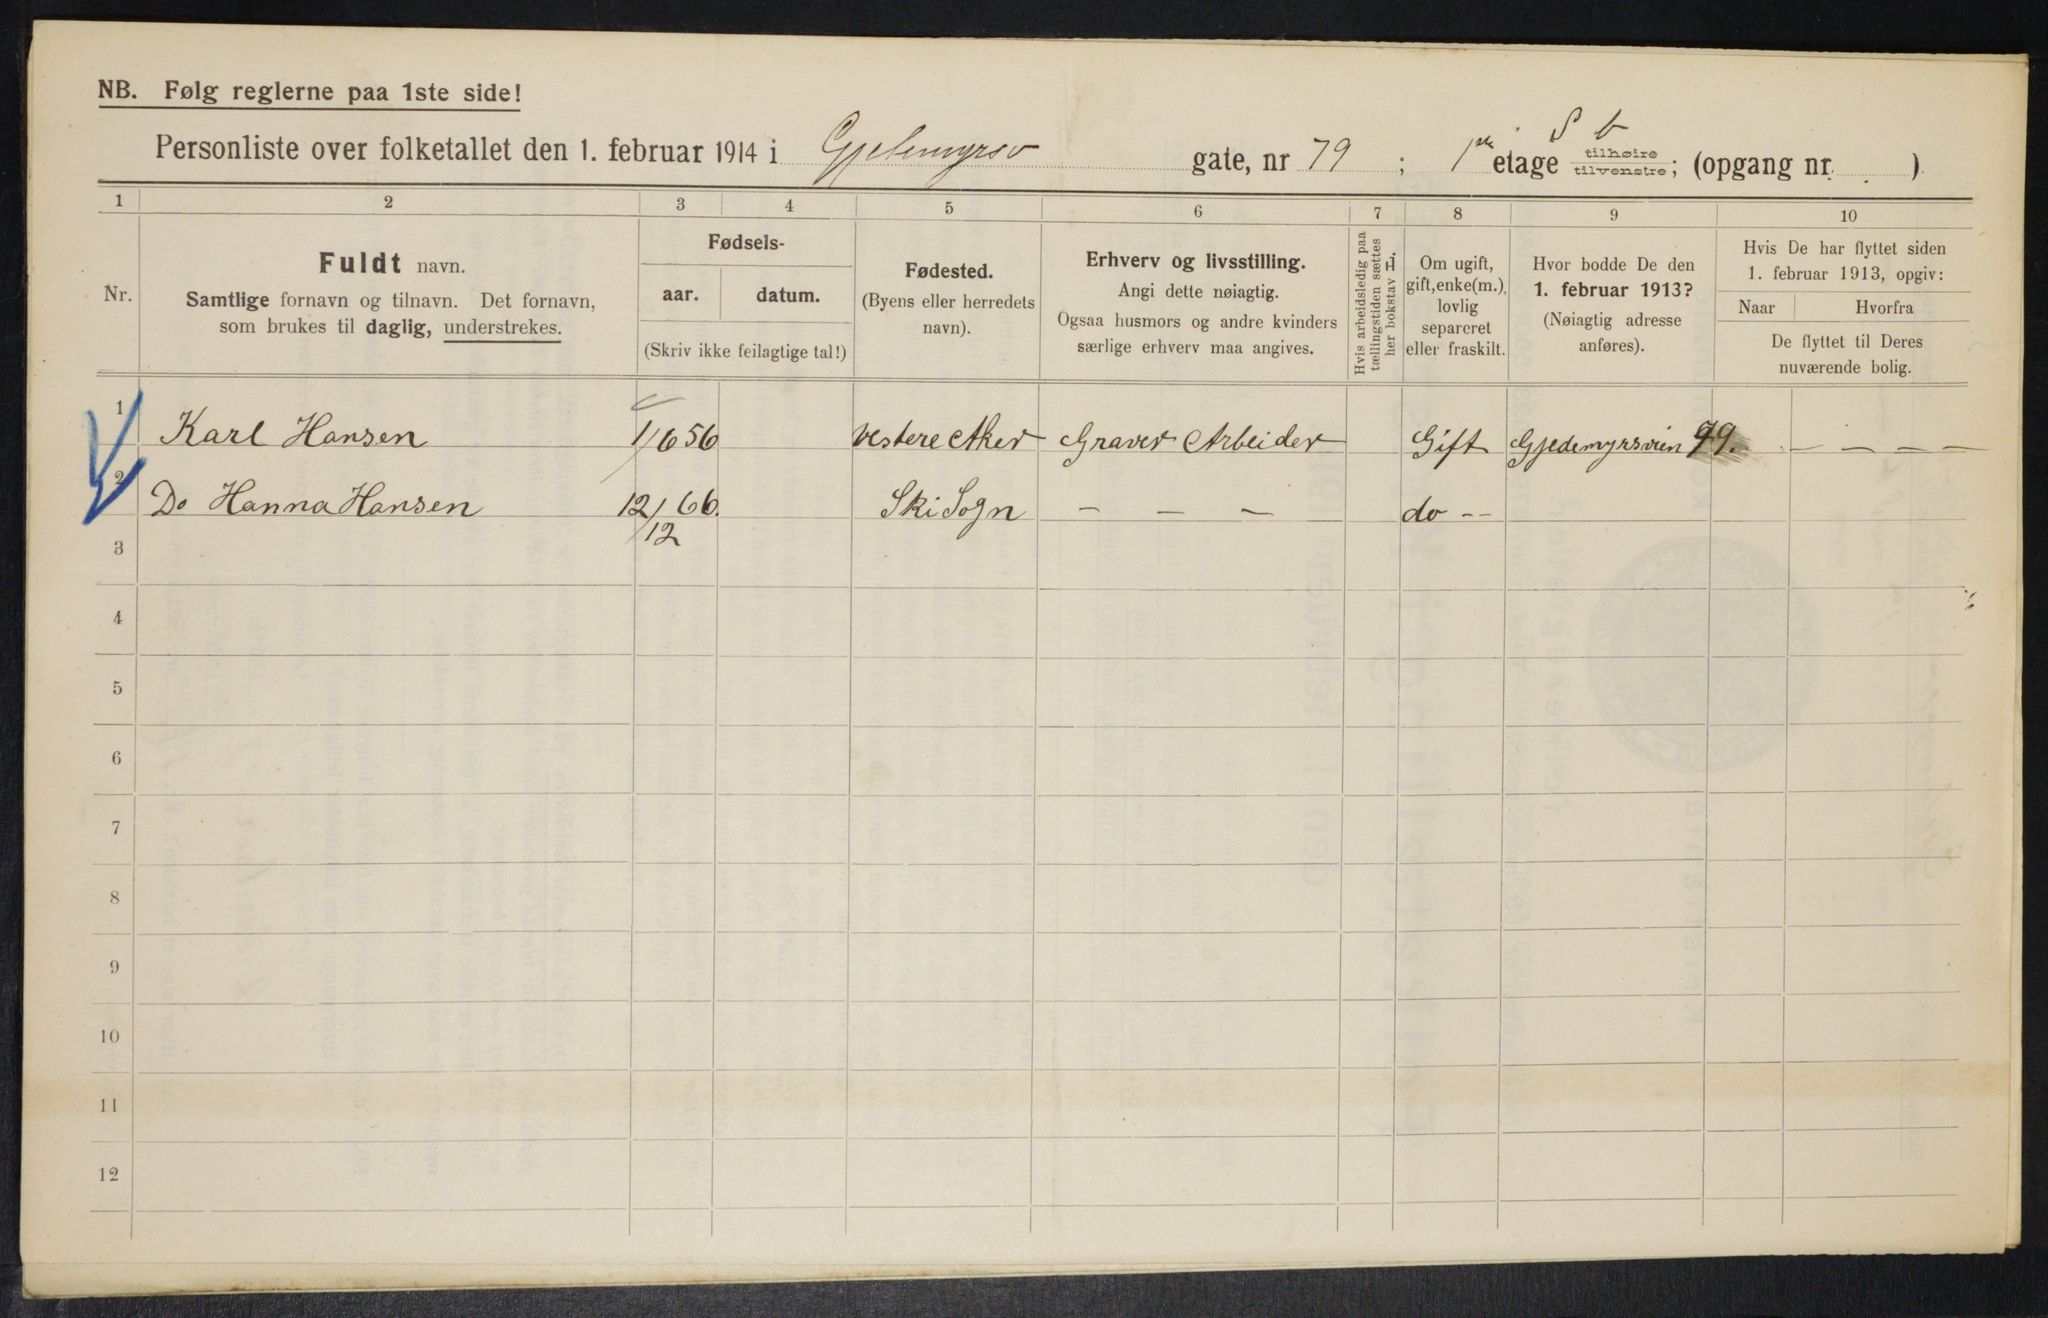 NB. Følg reglerne paa 1ste side!
Personliste over folketallet den 1. februar 1914 i Gjetemyrsv gate, nr 79 ; 1ste etage S b tilhøire tilvenstre; (opgang nr. )
1 2 3 4 5 6 7 8 9 10
Nr.
Fuldt navn.
Samtlige fornavn og tilnavn. Det fornavn,
som brukes til daglig, understrekes.
Fødsels-
aar. datum.
(Skriv ikke feilagtige tal!)
Fødested.
(Byens eller herredets
navn).
Erhverv og livsstilling.
Angi dette nøiagtig.
Ogsaa husmors og andre kvinders
særlige erhverv maa angives.
Hvis arbeidsledig paa
tællingstiden sættes
her bokstav L.
Om ugift,
gift, enke(m.),
lovlig
separeret
eller fraskilt.
Hvor bodde De den
1. februar 1913?
(Nøiagtig adresse
anføres).
Hvis De har flyttet siden
1. februar 1913, opgiv:
Naar Hvorfra
De flyttet til Deres
nuværende bolig.
1 Karl Hansen 1/6 56 Vestere Aker Graver Arbeider Gift Gjedemyrsveien 79. — — — —
2 Do Hanna Hansen 12/12 66. Ski Sogn — — — do --
3
4
5
6
7
8
9
10
11
12